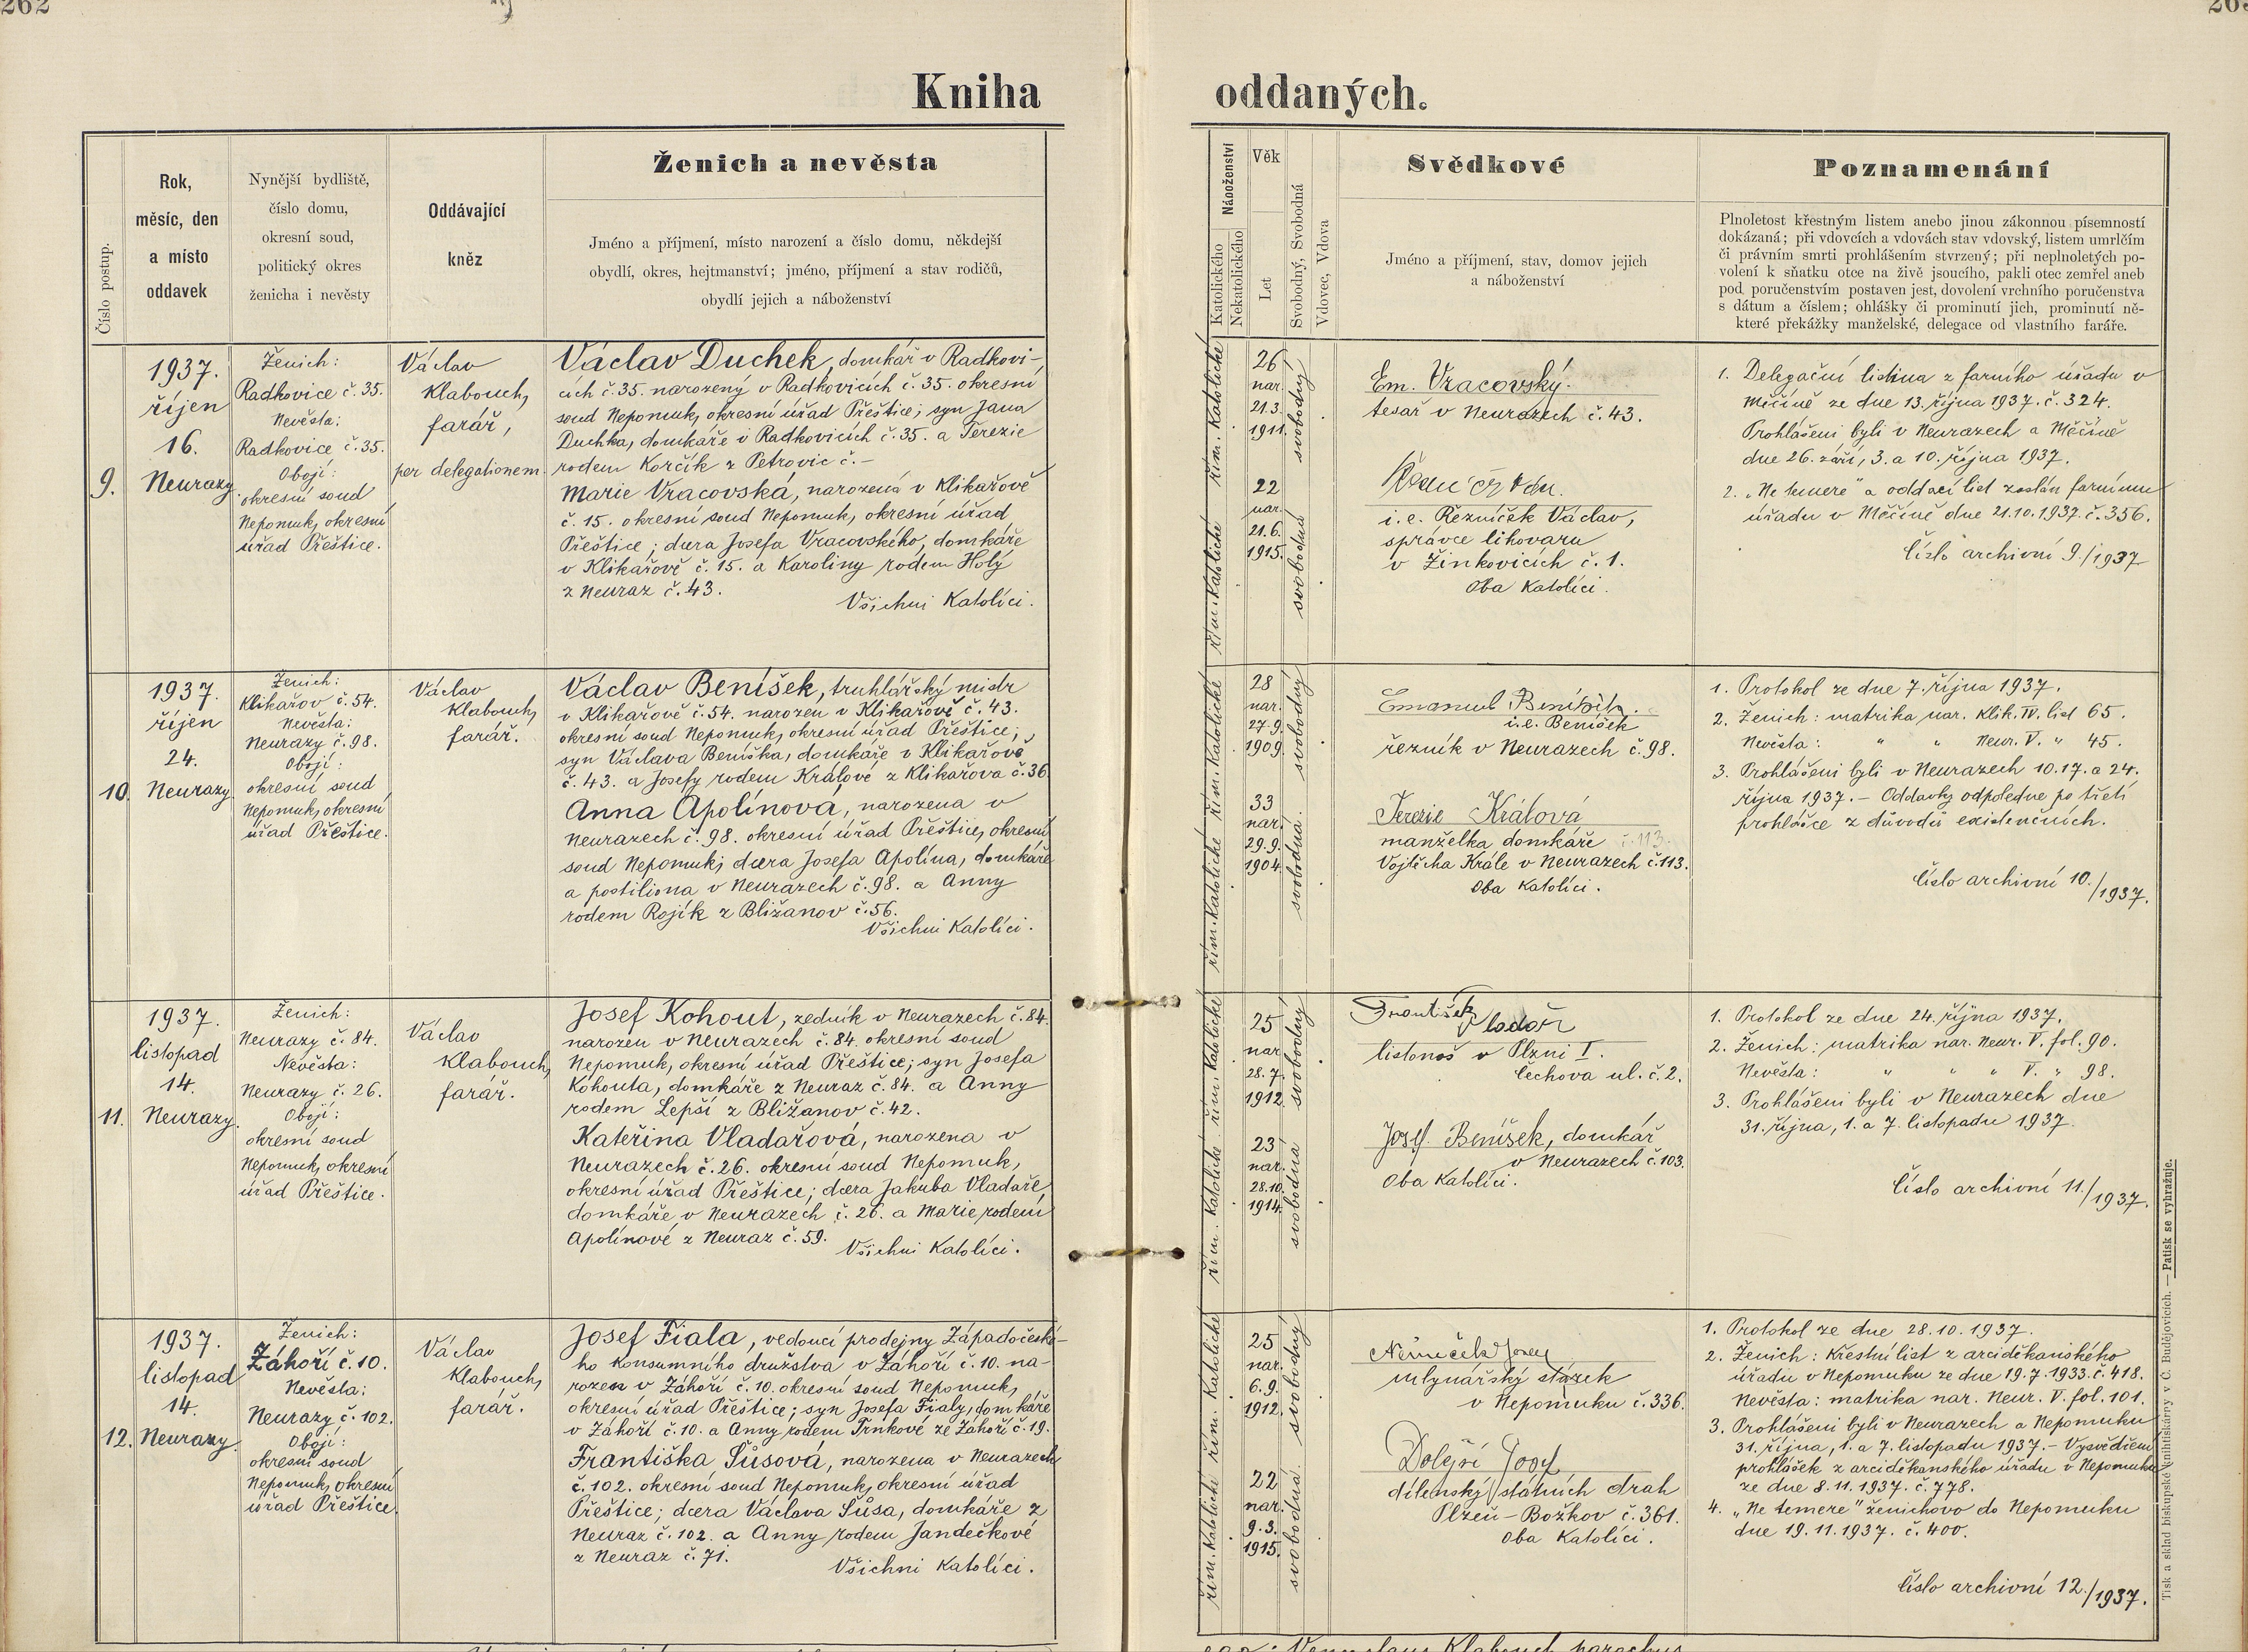 262
Kniha
oddaných.
Číslo postup.
Rok,
měsíc, den
a místo
oddavek
Nynější bydliště,
číslo domu,
okresní soud,
politický okres
ženicha i nevěsty
Oddávající
kněz
Ženich a nevěsta
Jméno a příjmení, místo narození a číslo domu, někdejší
obydlí, okres, hejtmanství; jméno, příjmení a stav rodičů,
obydlí jejich a náboženství
Náboženství
Katolického
Nekatolického
Věk
Let
Svobodný, Svobodná
Vdovec, Vdova
Svědkové
Jméno a příjmení, stav, domov jejich
a náboženství
Poznamenání
Plnoletost křestným listem anebo jinou zákonnou písemností
dokázaná; při vdovcích a vdovách stav vdovský, listem umrlčím
či právním smrti prohlášením stvrzený; při neplnoletých po-
volení k sňatku otce na živě jsoucího, pakli otec zemřel aneb
pod poručenstvím postaven jest, dovolení vrchního poručenstva
s dátum a číslem; ohlášky či prominutí jich, prominutí ně-
které překážky manželské, delegace od vlastního faráře.
9.
1937.
říjen
16.
Neurazy.
Ženich:
Radkovice č. 35.
Nevěsta:
Radkovice č. 35.
Obojí:
okresní soud
Nepomuk, okresní
úřad Přeštice.
Václav
Klabouch,
farář,
per delegationem.
Václav Duchek, domkář v Radkovi-
cích č. 35. narozený v Radkovicích č. 35. okresní
soud Nepomuk, okresní úřad Přeštice; syn Jana
Duchka, domkáře v Radkovicích č. 35. a Terezie
rodem Korčík z Petrovic č. –
Marie Vracovská, narozená v Klikařově
č. 15. okresní soud Nepomuk, okresní úřad
Přeštice; dcera Josefa Vracovského, domkáře
v Klikařově č. 15. a Karoliny rodem Holý
z Neuraz č. 43.
Všichni Katolíci.
řím. Katolické
řím. Katolické
26
nar.
21.3.
1911.
svobodný
22
nar.
21.6.
1915.
svobodná
Em. Vracovský.
tesař v Neurazech č. 43.
i. e. Řezníček Václav,
správce lihovaru
v Žinkovicích č. 1.
Oba Katolíci.
1. Delegační listina z farního úřadu v
Měčíně ze dne 13. října 1937. č. 324.
Prohlášeni byli v Neurazech a Měčíně
dne 26. září, 3. a 10. října 1937.
2. „Ne temere" a oddací list zaslán farnímu
úřadu v Měčíně dne 21.10.1937. č. 356.
Číslo archivní 9./1937
10.
1937.
říjen
24.
Neurazy.
Ženich:
Klikařov č. 54.
Nevěsta:
Neurazy č. 98.
Obojí:
okresní soud
Nepomuk, okresní
úřad Přeštice.
Václav
Klabouch,
farář.
Václav Beníšek, truhlářský mistr
v Klikařově č. 54. narozen v Klikařově č. 43.
okresní soud Nepomuk, okresní úřad Přeštice;
syn Václava Beníška, domkáře v Klikařově
č. 43. a Josefy rodem Králové z Klikařova č. 36.
Anna Apolínová, narozena v
Neurazech č. 98. okresní úřad Přeštice, okresní
soud Nepomuk; dcera Josefa Apolína, domkáře
a postiliona v Neurazech č. 98. a Anny
rodem Rojík z Bližanov č. 56.
Všichni Katolíci.
řím. Katolické
řím. Katolické
28
nar.
27.9.
1909.
svobodný
33
nar.
29.9.
1904.
svobodná.
Emanuel Beníšek.
i. e. Beníšek
řezník v Neurazech č. 98.
Terezie Králová
manželka domkáře č. 113.
Vojtěcha Krále v Neurazech č. 113.
Oba Katolíci.
1. Protokol ze dne 7. října 1937.
2. Ženich: matrika nar. Klik. IV. list 65.
Nevěsta: " " Neur. V. " 45.
3. Prohlášeni byli v Neurazech 10. 17. a 24.
října 1937. – Oddavky odpoledne po třetí
prohlášce z důvodů existenčních.
Číslo archivní 10./1937.
11.
1937.
listopad
14.
Neurazy.
Ženich:
Neurazy č. 84.
Nevěsta:
Neurazy č. 26.
Obojí:
okresní soud
Nepomuk, okresní
úřad Přeštice.
Václav
Klabouch,
farář.
Josef Kohout, zedník v Neurazech č. 84.
narozen v Neurazech č. 84. okresní soud
Nepomuk, okresní úřad Přeštice; syn Josefa
Kohouta, domkáře z Neuraz č. 84. a Anny
rodem Lepší z Bližanov č. 42.
Kateřina Vladařová, narozena v
Neurazech č. 26. okresní soud Nepomuk,
okresní úřad Přeštice; dcera Jakuba Vladaře,
domkáře v Neurazech č. 26. a Marie rodem
Apolínové z Neuraz č. 59.
Všichni Katolíci.
řím. Katolické
řím. Katolické
25
nar.
28.7.
1912.
svobodný
23
nar.
28.10.
1914.
svobodná
František
listonoš v Plzni I.
Čechova ul. č. 2.
Josef Beníšek, domkář
v Neurazech č. 103.
Oba Katolíci.
1. Protokol ze dne 24. října 1937.
2. Ženich: matrika nar. Neur. V. fol. 90.
Nevěsta: " " " V. " 98.
3. Prohlášeni byli v Neurazech dne
31. října, 1. a 7. listopadu 1937.
Číslo archivní 11./1937.
12.
1937.
listopad
14.
Neurazy.
Ženich:
Záhoří č. 10.
Nevěsta:
Neurazy č. 102.
Obojí:
okresní soud
Nepomuk, okresní
úřad Přeštice.
Václav
Klabouch,
farář.
Josef Fiala, vedoucí prodejny Západočeské-
ho konsumního družstva v Záhoří č. 10. na-
rozen v Záhoří č. 10. okresní soud Nepomuk,
okresní úřad Přeštice; syn Josefa Fialy, domkáře
v Záhoří č. 10. a Anny rodem Trnkové ze Záhoří č. 19.
Františka Šůsová, narozena v Neurazech
č. 102. okresní soud Nepomuk, okresní úřad
Přeštice; dcera Václava Šůsa, domkáře z
Neuraz č. 102. a Anny rodem Jandečkové
z Neuraz č. 71.
Všichni Katolíci.
řím. Katolické
řím. Katolické
25
nar.
6.9.
1912.
svobodný
22
nar.
9.3.
1915.
svobodná.
Němeček Josef
mlynářský stárek
v Nepomuku č. 336.
Dolejší Josef
dílenský státních drah
Plzeň – Božkov č. 361.
Oba Katolíci.
1. Protokol ze dne 28.10.1937.
2. Ženich: Křestní list z arciděkanského
úřadu v Nepomuku ze dne 19.7.1933. č. 418.
Nevěsta: matrika nar. Neur. V. fol. 101.
3. Prohlášeni byli v Neurazech a Nepomuku
31. října, 1. a 7. listopadu 1937. – Vysvědčení
prohlášek z arciděkanského úřadu v Nepomuku
ze dne 8.11.1937. č. 778.
4. „Ne temere" ženichovo do Nepomuku
dne 19.11.1937. č. 400.
Číslo archivní 12./1937.
Tisk a sklad biskupské knihtiskárny v Č. Budějovicích. — Patisk se vyhražuje.